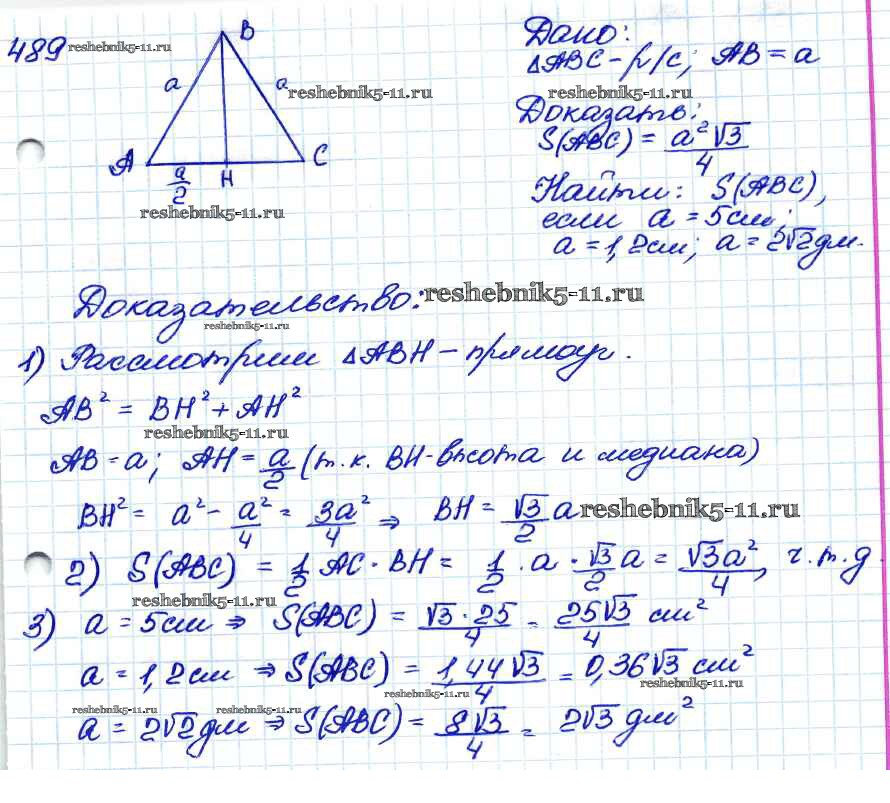 489 reshebnik5-11.ru
B
a
a
reshebnik5-11.ru
A
a/2
H
C
reshebnik5-11.ru
Дано:
ΔABC – р/с; AB = a
reshebnik5-11.ru
Доказать:
S(ABC) = a²√3/4
Найти: S(ABC),
если a = 5см;
a = 1,2см; a = 2√2дм.
Доказательство: reshebnik5-11.ru
reshebnik5-11.ru
1) Рассмотрим ΔABH – прямоуг.
AB² = BH² + AH²
reshebnik5-11.ru
AB = a; AH = a/2 (т.к. BH-высота и медиана)
BH² = a² - a²/4 = 3a²/4 ⇒ BH = √3/2 a reshebnik5-11.ru
2) S(ABC) = 1/2 AC · BH = 1/2 · a · √3/2 a = √3a²/4, ч.т.д.
reshebnik5-11.ru
3) a = 5см ⇒ S(ABC) = √3·25/4 = 25√3/4 см²
a = 1,2см ⇒ S(ABC) = 1,44√3/4 = 0,36√3 см²
reshebnik5-11.ru reshebnik5-11.ru
reshebnik5-11.ru reshebnik5-11.ru
a = 2√2дм ⇒ S(ABC) = 8√3/4 = 2√3 дм²